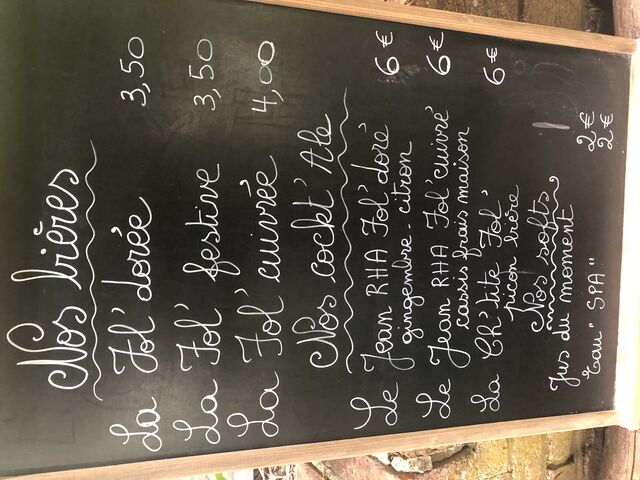 Nos bières
La Fol' dorée 3,50
La Fol' festive 3,50
La Fol' cuivrée 4,00
Nos cockt'Ale
Le Jean RHA Fol' doré 6€
gingembre - citron
Le Jean RHA Fol' cuivré 6€
cassis frais maison
La Ch'tite Fol' 6€
picon bière
Nos softs
Jus du moment 2€
Eau "SPA" 2€